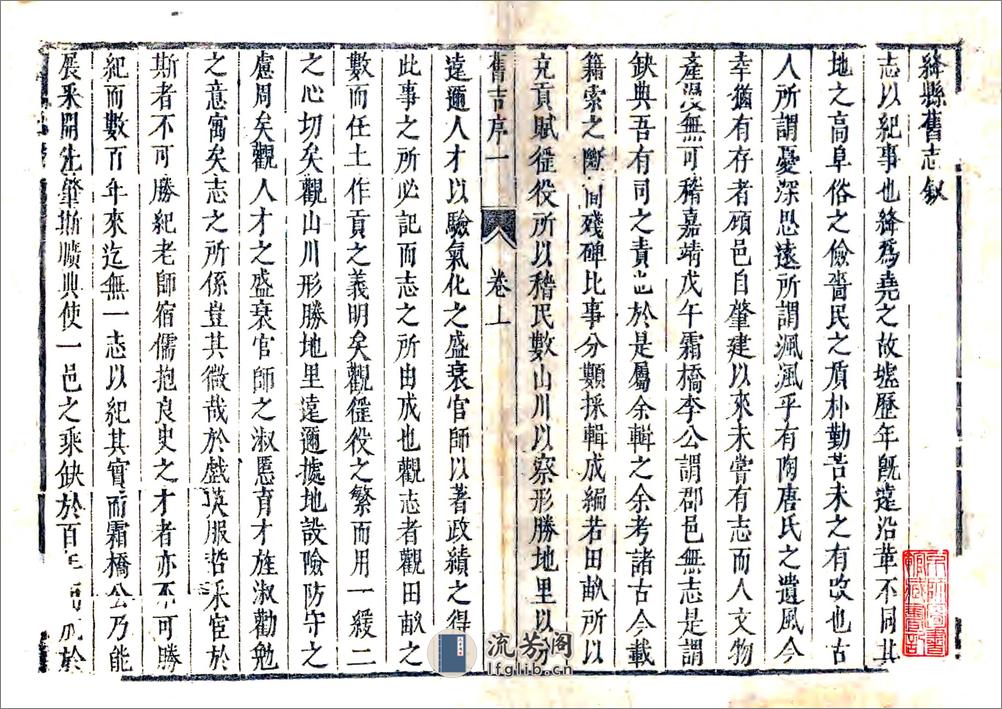 絳縣舊志敘
志以紀事也絳為堯之故墟歷年旣遠沿革不同其
地之高阜俗之儉嗇民之质朴勤苦未之有改也古
人所謂憂深思遠所謂渢渢乎有陶唐氏之遺風今
幸猶有存者顧邑自肇建以來未嘗有志而人文物
產漫無可稽嘉靖戊午霜橋李公謂郡邑無志是謂
缺典吾有司之責也於是屬余輯之余考諸古今載
籍索之斷間殘碑比事分類採輯成編若田畝所以
充貢賦徭役所以稽民數山川以察形勝地里以分
舊志序一 卷上
遠邇人才以驗氣化之盛衰官師以著政績之得
此事之所必記而志之所由成也觀志者觀田畝之
數而任土作貢之義明矣觀徭役之繁而用一緩二
之心切矣觀山川形勝地里遠邇據地設險防守之
慮周矣觀人才之盛衰官師之淑慝育才旌淑勸勉
之意寓矣志之所係豈其微哉於戲英服哲采宦於
斯者不可勝紀老師宿儒抱良史之才者亦不可勝
紀而數百年來迄無一志以紀其實而霜橋公乃能
展采開先肇斯曠典使一邑之乘缺於百年於
流芳阁
lfglib.cn